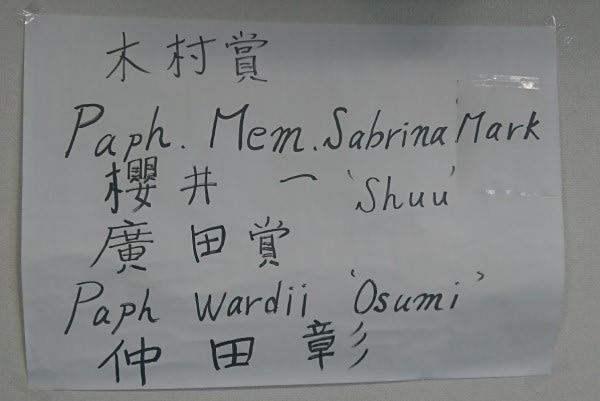 木村賞
Paph. Mem. Sabrina Mark
櫻井 一 'Shuu'
廣田賞
Paph wardii 'Osumi'
仲田彰